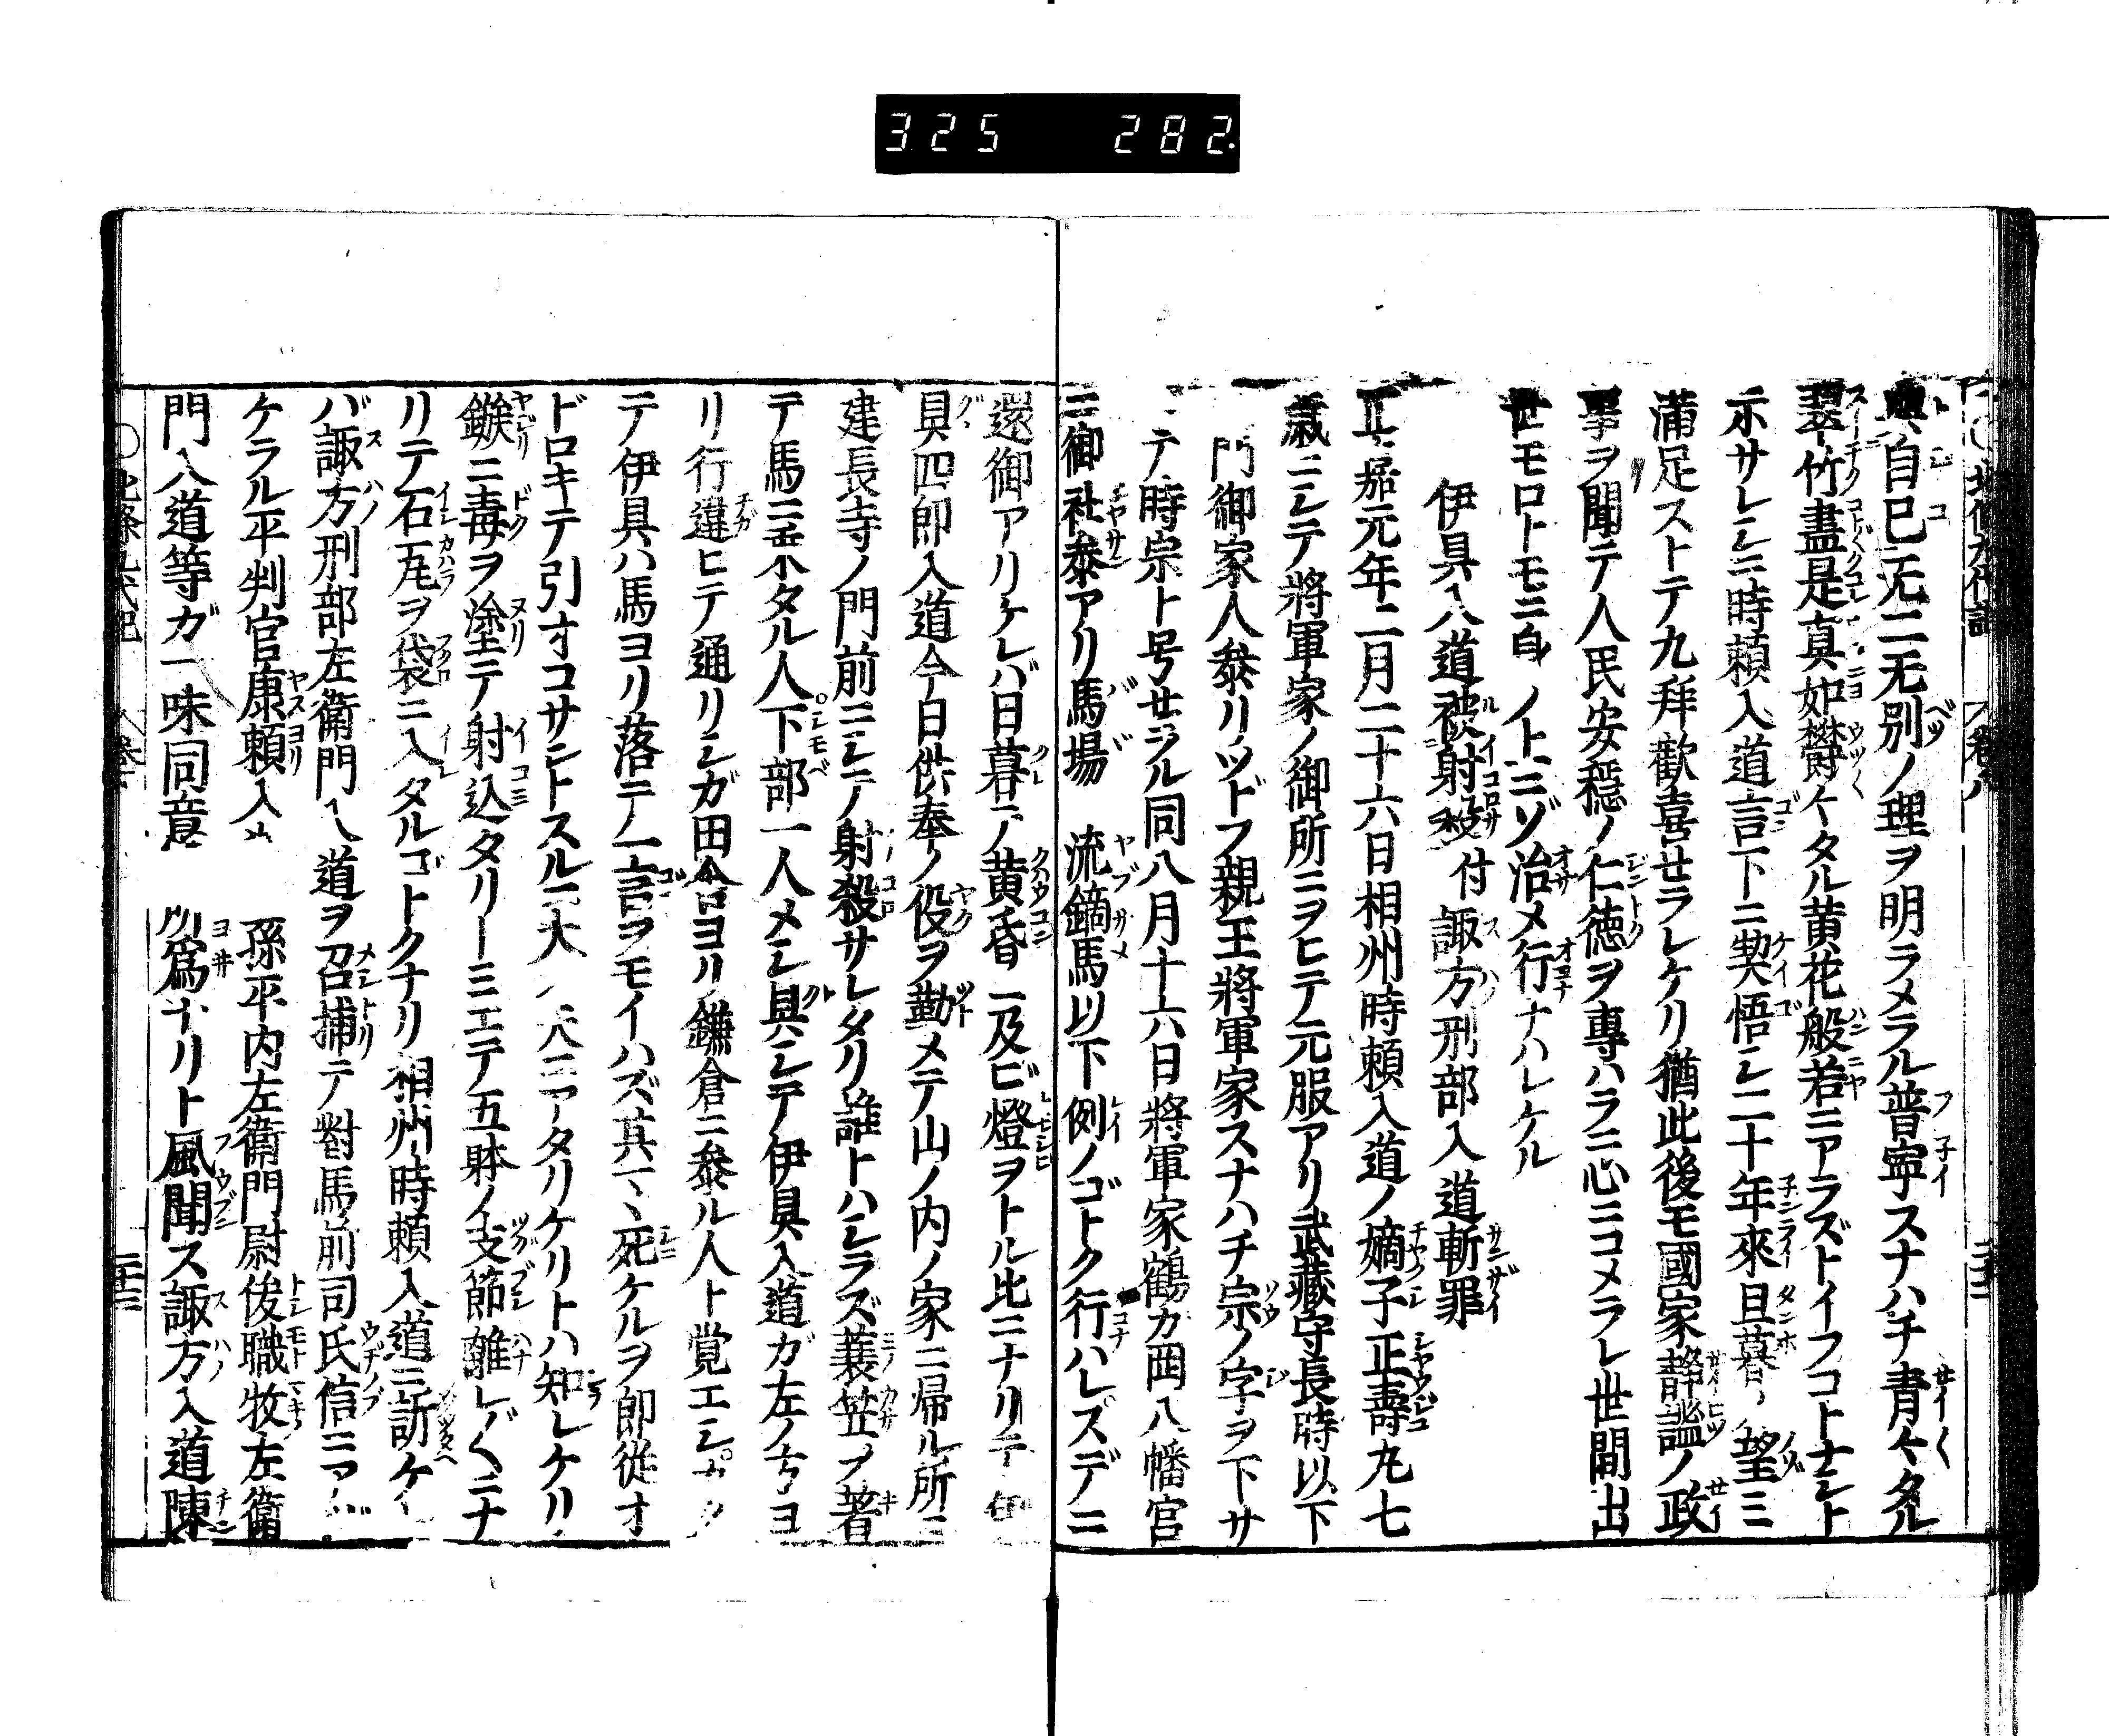 325 282
北條九代記 巻八
與自己无二无別ノ理ヲ明ラメラル普寧スナハチ青々タル
翠竹盡是真如欝々タル黄花般若ニアラズトイフコトナシト
示サレシニ時頼入道言下ニ契悟シ二十年來旦暮ノ望ミ
滿足ストテ九拜歡喜セラレケリ猶此後モ國家靜謐ノ政
事ヲ聞テ人民安穩ノ仁徳ヲ專ハラニ心ニコメラレ世間出
世モロトモニ自ノ上ニゾ治メ行ナハレケル
伊具入道被射殺付諏方刑部入道斬罪
正嘉元年二月二十六日相州時頼入道ノ嫡子正壽丸七
歳ニシテ將軍家ノ御所ニヲヒテ元服アリ武藏守長時以下
門御家人參リツドフ親王將軍家スナハチ宗ノ字ヲ下サ
テ時宗ト号セラル同八月十六日將軍家鶴カ岡八幡宮
ニ御社參アリ馬場 流鏑馬以下例ノゴトク行ハレスデニ
還御アリケレバ日暮テ黄昏ニ及ビ燈ヲトル比ニナリテ伊
具四郎入道今日供奉ノ役ヲ勤メテ山ノ内ノ家ニ帰ル所ニ
建長寺ノ門前ニシテ射殺サレタリ誰トハシラズ蓑笠ヲ著
テ馬ニ乗タル人下部一人メシ具シテ伊具入道ガ左ノ方ヨ
リ行違ヒテ通リシガ田舎ヨリ鎌倉ニ參ル人ト覚エシ
テ伊具ハ馬ヨリ落テ一言ヲモイハズ其マヽ死ケルヲ郎從オ
ドロキテ引オコサントスルニ大 矢ニアタリケリトハ知レケリ
鏃ニ毒ヲ塗テ射込タリーミエテ五躰ノ支節離レバくニナ
リテ石瓦ヲ袋ニ入タルゴトクナリ相州時頼入道ニ訴ケ
バ諏方刑部左衛門入道ヲ召捕テ對馬前司氏信ニア
ケラル平判官康頼入 孫平内左衛門尉俊職牧左衛
門入道等ガ一味同意 所爲ナリト風聞ス諏方入道陳
北條九代記 巻